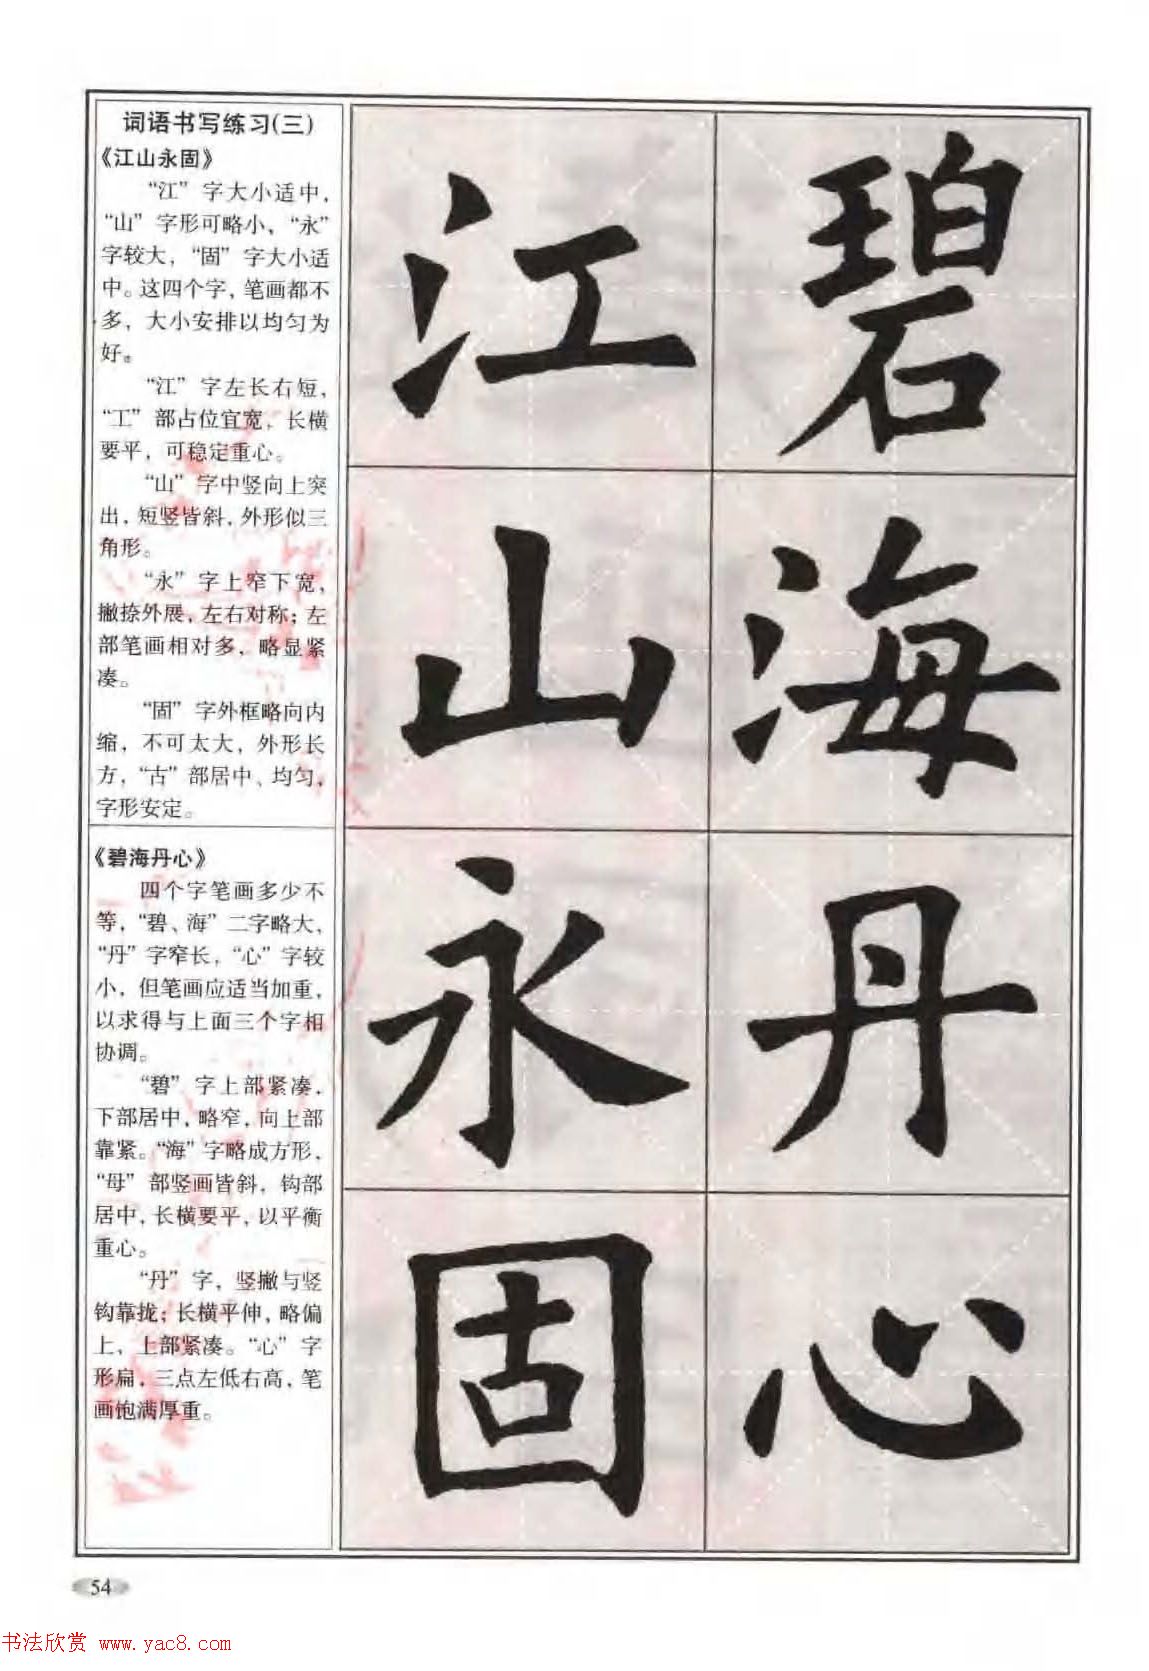 词语书写练习(三)
《江山永固》
“江”字大小适中，
“山”字形可略小，“永”
字较大，“固”字大小适
中。这四个字，笔画都不
多，大小安排以均匀为
好。
“江”字左长右短，
“工”部占位宜宽，长横
要平，可稳定重心。
“山”字中竖向上突
出，短竖皆斜，外形似三
角形。
“永”字上窄下宽，
撇捺外展，左右对称；左
部笔画相对多，略显紧
凑。
“固”字外框略向内
缩，不可太大，外形长
方，“古”部居中、均匀，
字形安定。
《碧海丹心》
四个字笔画多少不
等，“碧、海”二字略大，
“丹”字窄长，“心”字较
小，但笔画应适当加重，
以求得与上面三个字相
协调。
“碧”字上部紧凑，
下部居中，略窄，向上部
靠紧。“海”字略成方形，
“母”部竖画皆斜，钩部
居中，长横要平，以平衡
重心。
“丹”字，竖撇与竖
钩靠拢；长横平伸，略偏
上，上部紧凑。“心”字
形扁，三点左低右高，笔
画饱满厚重。
江
山
永
固
碧
海
丹
心
54
书法欣赏 www.yac8.com